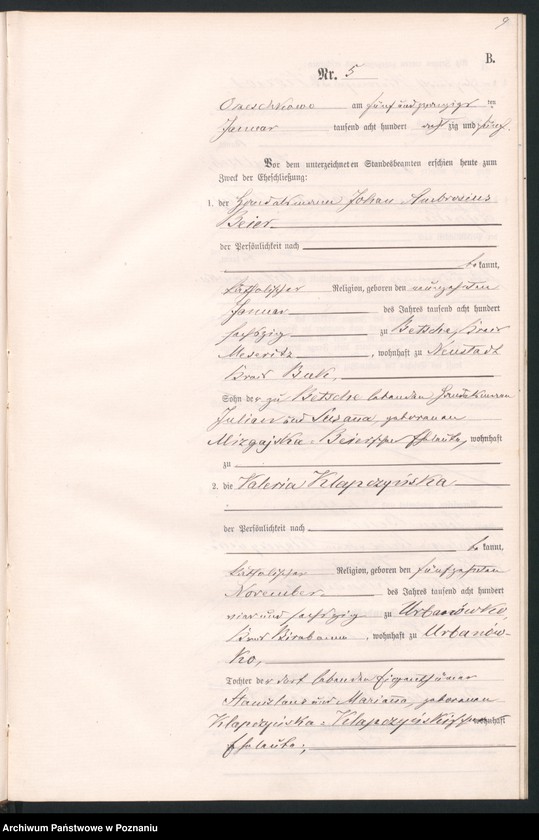 9
B.
Nr. 5
am fünf und zwanzigsten
Januar tausend acht hundert acht zig und fünf.
Vor dem unterzeichneten Standesbeamten erschien heute zum
Zweck der Eheschließung:
1. der Handelsmann Johan Ambrosius
Beier
der Persönlichkeit nach
be kannt,
katholischer Religion, geboren den neunzehnten
Januar des Jahres tausend acht hundert
sechszig zu Betsche, Kreis
Meseritz, wohnhaft zu Neustadt
Kreis Buk,
Sohn der zu Betsche lebenden
Julian und Susanna, geborenen
Mizgajska - Beierschen Eheleute, wohnhaft
zu
2. die Valeria Klapczyńska
der Persönlichkeit nach
be kannt,
katholischer Religion, geboren den fünfzehnten
November des Jahres tausend acht hundert
vier und sechszig zu Urbanówko,
Kreis Birnbaum, wohnhaft zu Urbanów-
ko,
Tochter der dort lebenden Eigenthümer
Stanislaus und Marianna, geborenen
Klapczyńska - Klapczyńskischen wohnhaft
Eheleute,
Archiwum Państwowe w Poznaniu